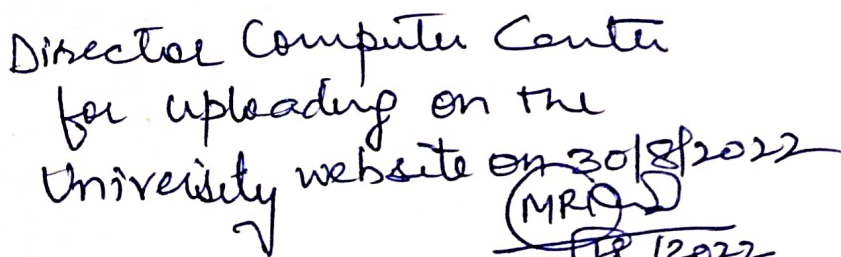 Director Computer Center
for uploading on the
University website on 30/8/2022
/2022